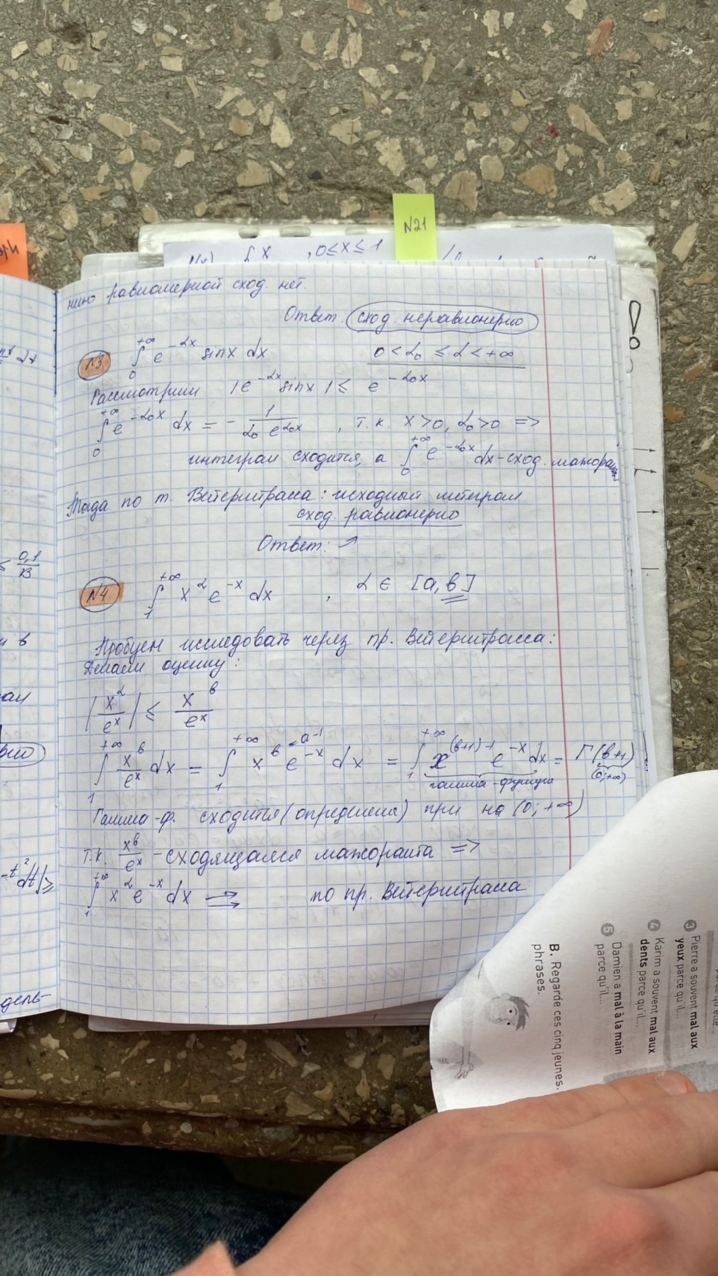 N21
0≤x≤1
нию равномерной сход. нет.
Ответ: сход. неравномерно
N3 ∫₀^{+∞} e^{-αx} sinx dx 0 < α₀ ≤ α < +∞
Рассмотрим |e^{-αx} sinx| ≤ e^{-α₀x}
∫₀^{+∞} e^{-α₀x} dx = - 1/(α₀ e^{α₀x}) , т.к. x>0, α₀>0 =>
интеграл сходится, а ∫₀^{+∞} e^{-α₀x} dx - сход. мажоран
Тогда по т. Вейерштрасса: исходный интеграл
сход равномерно
Ответ: ↗
N4 ∫₁^{+∞} x^α e^{-x} dx , α ∈ [a, b]
Пробуем исследовать через пр. Вейерштрасса:
Делаем оценку:
|x^α/e^x| ≤ x^b/e^x
∫₁^{+∞} x^b/e^x dx = ∫₁^{+∞} x^b e^{-x} dx = ∫₁^{+∞} x^{(b+1)-1} e^{-x} dx = Γ(b+1)
гамма-функция (0;+∞)
Гамма-ф. сходится (определена) при на (0; +∞)
т.к. x^b/e^x - сходящаяся мажоранта =>
∫₁^{+∞} x^α e^{-x} dx ⇉ по пр. Вейерштрасса
0,1
13
в
-t² dt| ≥
Pierre a souvent mal aux
yeux parce qu'il...
Karim a souvent mal aux
dents parce qu'il...
5 Damien a mal à la main
parce qu'il...
B. Regarde ces cinq jeunes.
phrases.